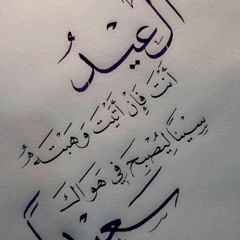 العِيْدُ
أَنْتَ فَإِنْ أَتَيْتَ وَهَبْتَهُ
سِيْناً لِيُصْبِحَ فِي هَوَاكَ
سَعِيْداً